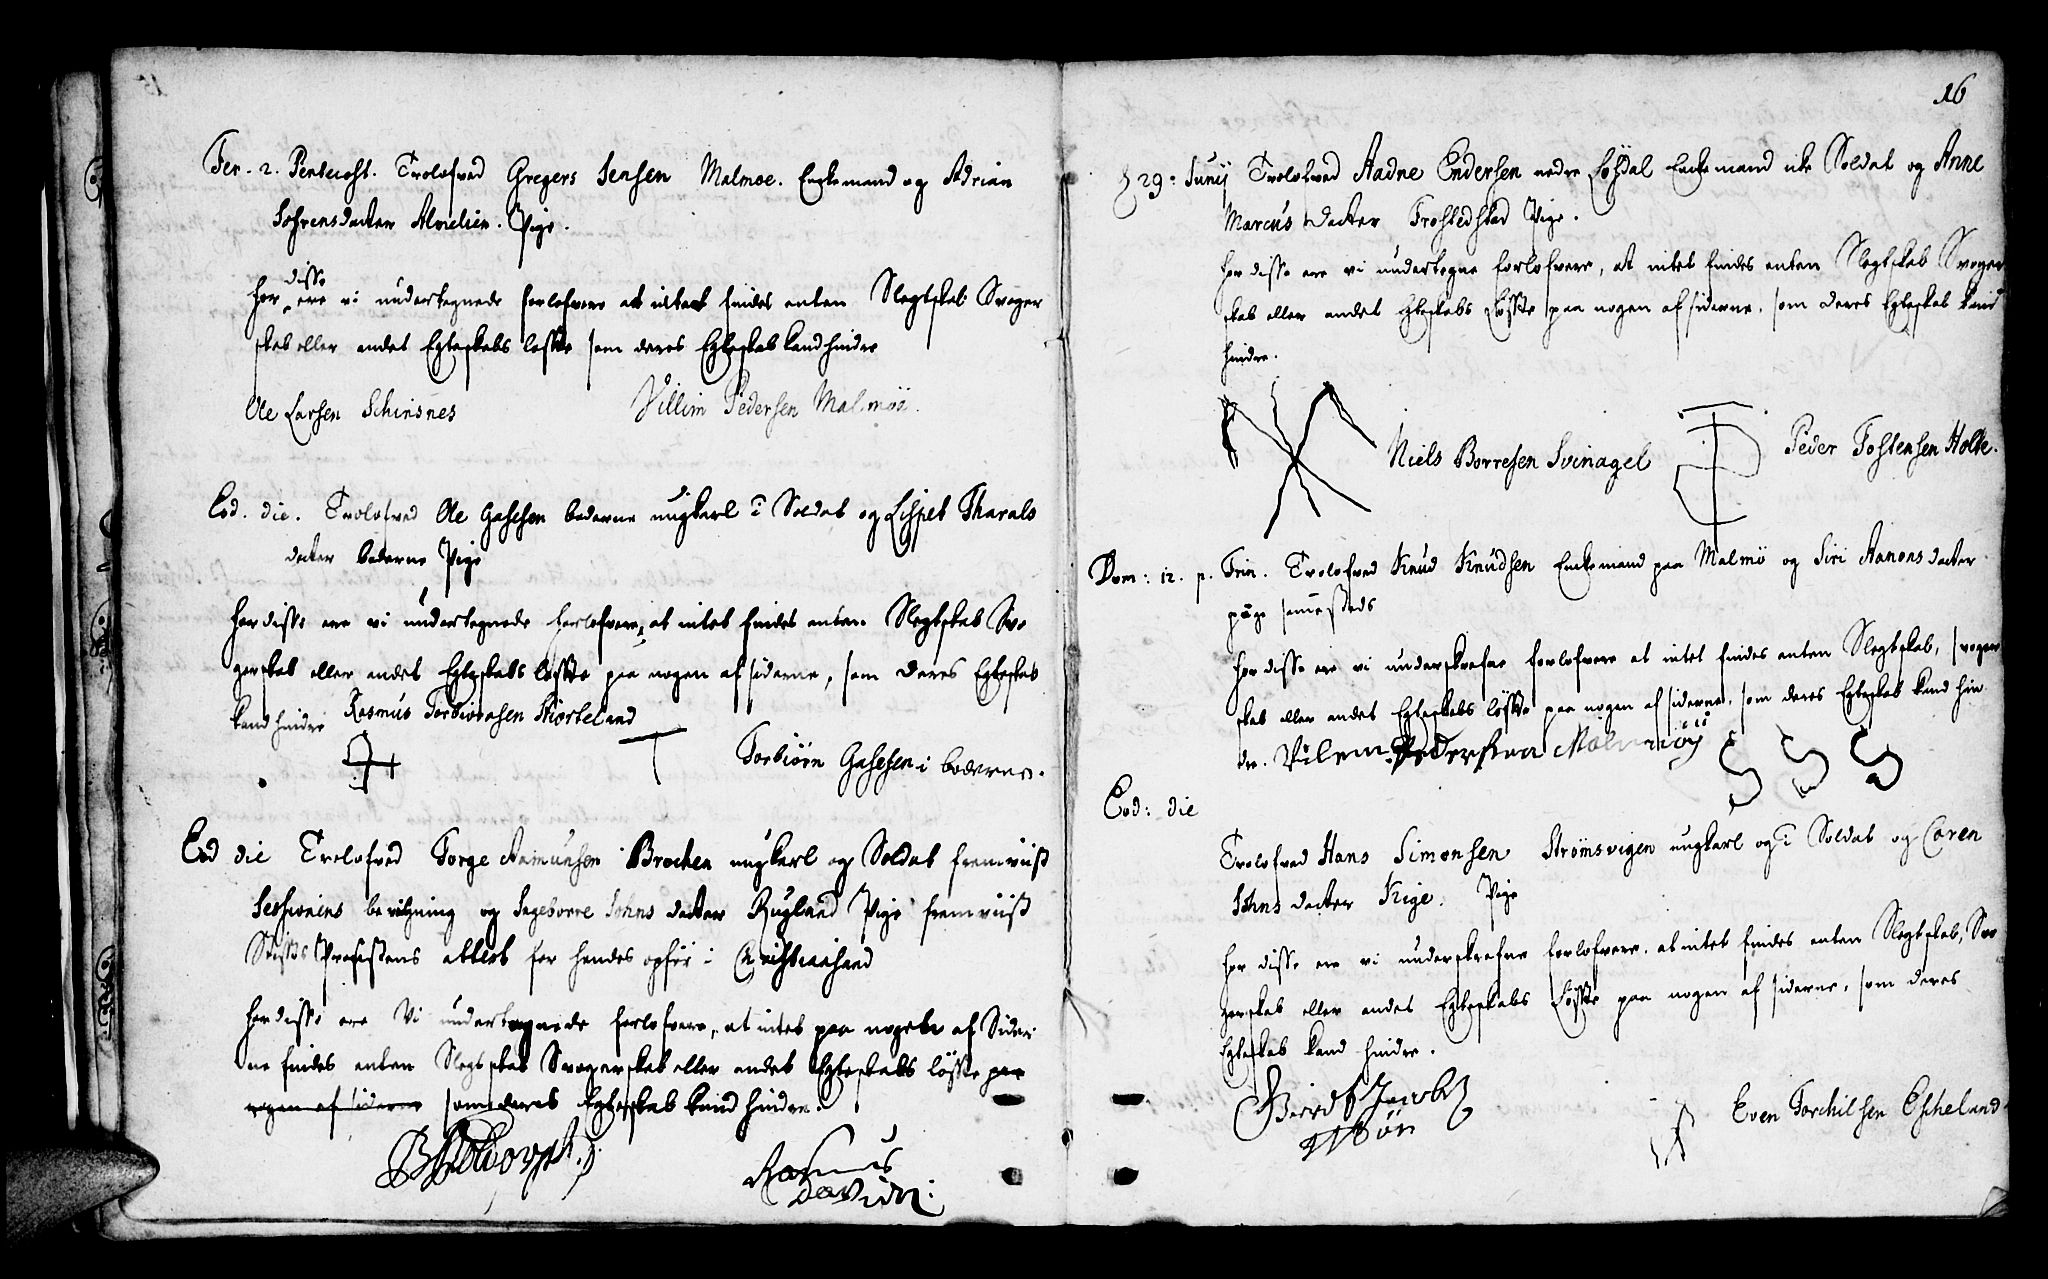 Fer. 2. Pentecost. Trolofved Gregers Jensen Malmoe. Enkemand og Adrian
Sohrensdatter Alvelien. Pige.
disse
For ere vi undertegnede forlofvere at intet findes enten Slegtskab Svoger
skab eller andet Egteskabs løfte som deres Egteskab kand hindre
Ole Larsen Schirisnes Villim Pedersen Malmöe.
Eod. die. Trolofved Ole Gasesen boderne ungkarl i Soldat og Lispet Tharals
datter boderne Pige
For disse ere vi undertegnede forlofvere, at intet findes enten Slegtskab Svo
gerskab eller andet Egteskabs løfte paa nogen af siderne, som deres Egteskab
kand hindre Rasmus Torbiörnsen Kiorteland
Torbiörn Gasesen i boderne.
Eod die Trolofved Torge Aamunsen Brochen ungkarl og Soldat fremviist
Sessionens bevilgning og Ingeborre Johns datter Rugland Pige fremviist
Stifts Profostens attest for hendes ophör i Christiansand
For disse ere Vi undertegnede forlofvere, at intet paa nogen af Sider
ne findes enten Slegtskab Svogerskab eller andet Egteskabs løfte paa
nogen af siderne som deres Egteskab kand hindre.
Rasmus
David
16
d 29: Junij Trolofved Aadne Endersen nedre Løfdal Enkemand icke Soldat og Anne
Marcus datter Trostedstad Pige.
For disse ere vi undertegne forlofvere, at intet findes enten Slegtskab Svoger
skab eller andet Egteskabs Løfte paa nogen af siderne, som deres Egteskab kand
hindre.
Niels Borresen Svinagel Peder Tostensen Holte.
Dom: 12. p. Trin. Trolofved Knud Knudsen Enkemand paa Malmö og Siri Aanonsdatter
pige sammesteds
For disse ere vi underskrefne forlofvere at intet findes enten Slegtskab, svoger
skab eller andet Egteskabs løfte paa nogen af siderne, som deres Egteskab kand hin
dre. Vilem Pedersen Malmöy SSS
Eod: die
Trolofved Hans Simonsen Strömsvigen ungkarl og i Soldat og Caren
Johns datter Kige. Pige
For disse ere vi underskrefne forlofvere, at intet findes enten Slegtskab, Svo
gerskab eller andet Egteskabs Løfte paa nogen af siderne, som deres
Egteskab kand hindre.
Even Torchilsen Escheland